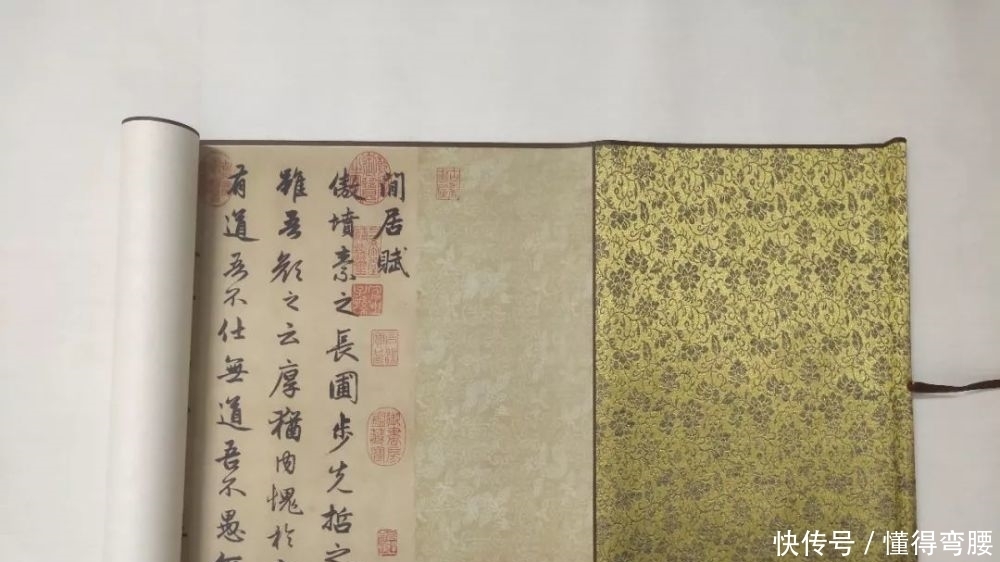 閒居賦
傲墳素之長圃步先哲之
雖吾顏之云厚猶內愧於
有道吾不仕無道吾不愚
御書房鑑藏寶
快传号 / 懂得弯腰